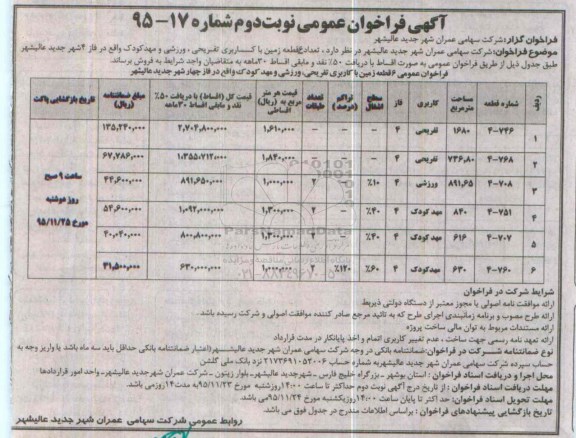 آگهی فراخوان عمومی نوبت دوم شماره ۱۷-۹۵
فراخوان گزار: شرکت سهامی عمران شهر جدید عالیشهر
موضوع فراخوان: شرکت سهامی عمران شهر جدید عالیشهر در نظر دارد ، تعداد ۶ قطعه زمین با کاربری تفریحی ، ورزشی و مهدکودک واقع در فاز ۴ شهر جدید عالیشهر
طبق جدول ذیل از طریق فراخوان عمومی به صورت اقساط با دریافت ۵۰٪ نقد و مابقی اقساط ۳۰ماهه به متقاضیان واجد شرایط به فروش برساند.
فراخوان عمومی ۶ قطعه زمین با کاربری تفریحی، ورزشی و مهد کودک واقع در فاز چهار شهر جدید عالیشهر
ردیف شماره قطعه مساحت مترمربع کاربری فاز سطح اشغال تراکم (درصد) تعداد طبقات قیمت هر متر مربع به (ریال) اقساطی قیمت کل (اقساط) با دریافت ۵۰٪ نقد و مابقی اقساط ۳۰ماهه مبلغ ضمانتنامه (ریال) تاریخ بازگشایی پاکت
۱ ۴-۷۴۶ ۱۶۸۰ تفریحی ۴ – – – ۱,۶۱۰,۰۰۰ ۲,۷۰۴,۸۰۰,۰۰۰ ۱۳۵,۲۴۰,۰۰۰
۲ ۴-۷۶۸ ۷۳۶,۸۰ تفریحی ۴ – – – ۱,۸۴۰,۰۰۰ ۱,۳۵۵,۷۱۲,۰۰۰ ۶۷,۷۸۶,۰۰۰
۳ ۴-۷۰۸ ۸۹۱,۶۵ ورزشی ۴ ٪۱۰ – ۲ ۱,۰۰۰,۰۰۰ ۸۹۱,۶۵۰,۰۰۰ ۴۴,۶۰۰,۰۰۰
۴ ۴-۷۵۱ ۸۴۰ مهد کودک ۴ ٪۴۰ – ۲ ۱,۳۰۰,۰۰۰ ۱,۰۹۲,۰۰۰,۰۰۰ ۵۴,۶۰۰,۰۰۰
۵ ۴-۷۰۷ ۶۱۶ مهد کودک ۴ ٪۴۰ – ۱,۳۰۰,۰۰۰ ۸۰۰,۸۰۰,۰۰۰ ۴۰,۰۴۰,۰۰۰
۶ ۴-۷۶۰ ۶۳۰ مهدکودک ۴ ٪۶۰ ٪۱۲۰ ۲ ۱,۰۰۰,۰۰۰ ۶۳۰,۰۰۰,۰۰۰ ۳۱,۵۰۰,۰۰۰
ساعت ۹ صبح
روز دوشنبه
مورخ ۹۵/۱۱/۲۵
شرایط شرکت در فراخوان
ارائه موافقت نامه اصولی یا مجوز معتبر از دستگاه دولتی ذیربط
ارائه طرح مصوب و برنامه زمانبندی اجرای طرح که به تائید مرجع صادر کننده موافقت اصولی و شرکت رسیده باشد.
ارائه مستندات مربوط به توان مالی ساخت پروژه
ارائه تعهد نامه رسمی جهت ساخت ، عدم تغییر کاربری اتمام و اخذ پایانکار در مدت قرارداد
نوع ضمانتنامه شرکت در فراخوان: ضمانتنامه بانکی در وجه شرکت سهامی عمران شهر جدید عالیشهر (اعتبار ضمانتنامه بانکی حداقل باید سه ماه باشد یا واریز وجه به
حساب سپرده شرکت سهامی عمران شهر جدید عالیشهر به شماره حساب ۲۱۷۳۶۹۱۰۵۲۰۰۶ نزد بانک ملی گلشن
محل اجرا و دریافت اسناد فراخوان : استان بوشهر – بزرگراه خلیج فارس – شهر جدید عالیشهر – بلوار زیتون – شرکت عمران شهر جدید عالیشهر – واحد امور قراردادها
مهلت دریافت اسناد فراخوان : از تاریخ درج آگهی نوبت دوم حداکثر تا ساعت ۱۴:۰۰ روز شنبه مورخ ۹۵/۱۱/۲۳ به مدت ۱۴ روز می باشد.
مهلت تحویل اسناد فراخوان: حد اکثر تا پایان ساعت ۱۴:۰۰ روز یکشنبه مورخ ۹۵/۱۱/۲۴ می باشد
تاریخ بازگشایی پیشنهادهای فراخوان : براساس اطلاعات مندرج در جدول فوق می باشد.
روابط عمومی شرکت سهامی عمران شهر جدید عالیشهر